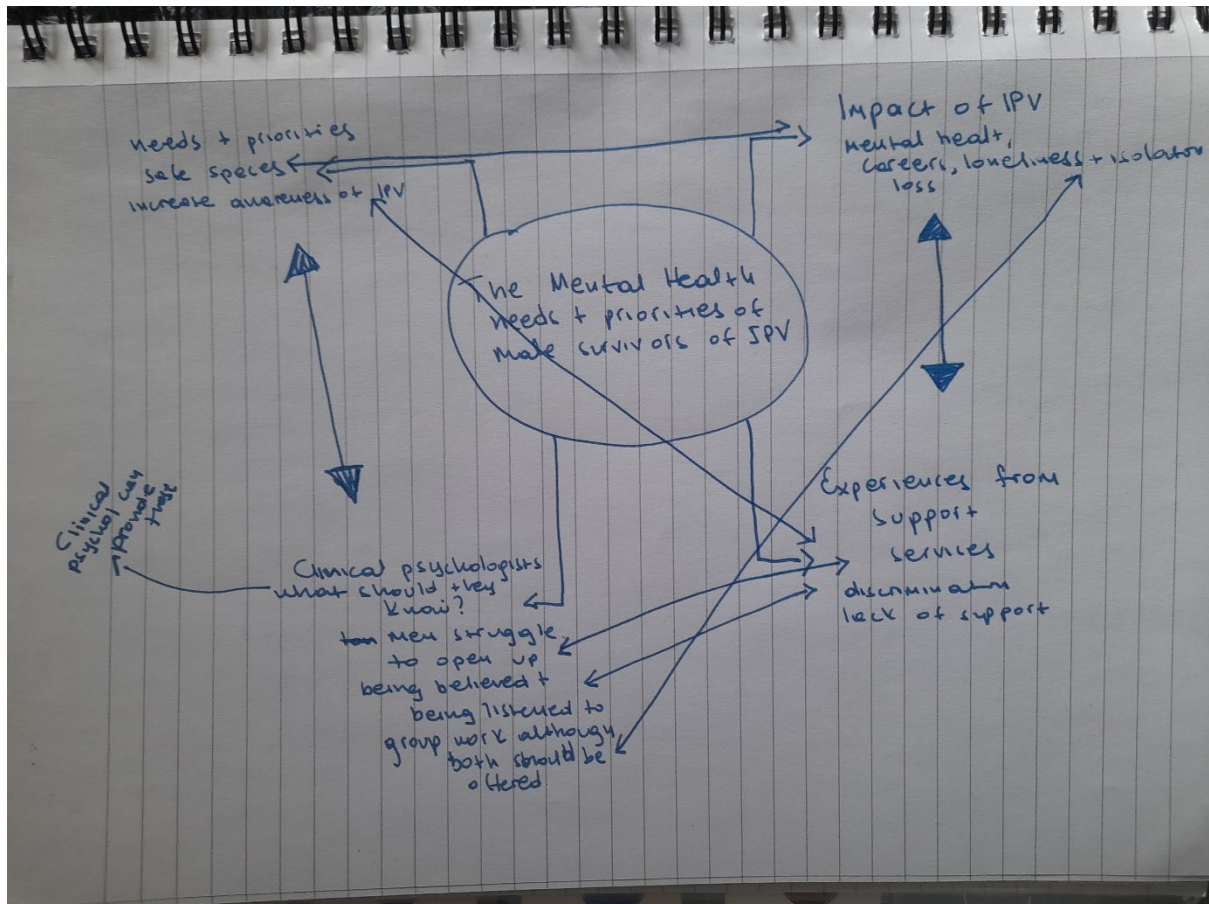 needs + priorities
safe spaces
increase awareness of IPV
Impact of IPV
mental healt,
careers, loneliness + isolation
loss
The Mental Health
needs + priorities of
male survivors of IPV
Clinical
psychol
provide
these
Clinical psychologists
what should they
know?
men struggle
to open up
being believed +
being listened to
group work although
both should be
offered
Experiences from
support
services
discrimination
lack of support